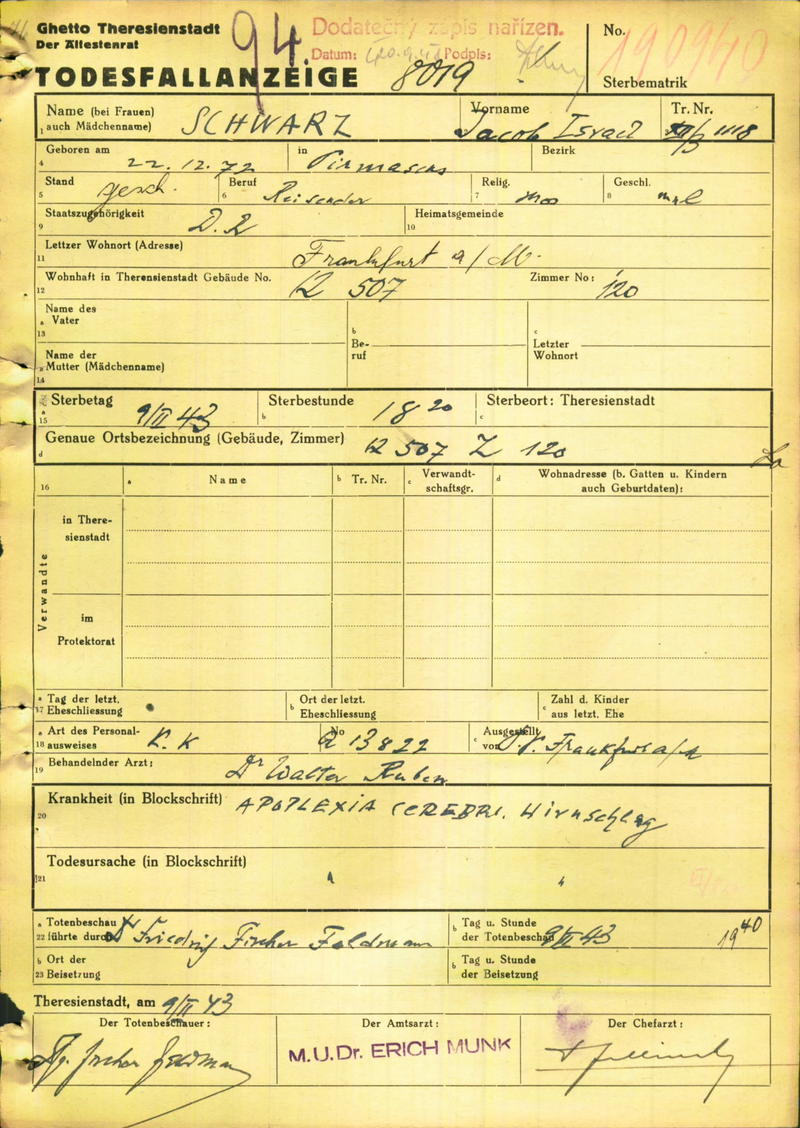 Ghetto Theresienstadt
Der Ältestenrat
TODESFALLANZEIGE
94.
8019
Dodatečný zápis nařízen.
Datum: Podpis:
No.
Sterbematrik
Name (bei Frauen) SCHWARZ Vorname Jacob Israel Tr. Nr. XII/3 1118
1 auch Mädchenname)
Geboren am 22.12.72 in Pirmasens Bezirk
4
Stand gesch. Beruf Reisender Relig. mos Geschl. mnl
5 6 7 8
Staatszugehörigkeit D.R Heimatsgemeinde
9 10
Lettzer Wohnort (Adresse) Frankfurt a/M.
11
Wohnhaft in Therensienstadt Gebäude No. Q 507 Zimmer No: 120
12
Name des
a Vater
13
b Beruf
c Letzter Wohnort
Name der
a Mutter (Mädchenname)
14
Sterbetag 9/II 43 Sterbestunde 18 20 Sterbeort: Theresienstadt
a 15 b c
Genaue Ortsbezeichnung (Gebäude, Zimmer) Q 507 Z 120
d
16 a Name b Tr. Nr. c Verwandtschaftsgr. d Wohnadresse (b. Gatten u. Kindern auch Geburtdaten):
Verwandte
in Theresienstadt
im Protektorat
a Tag der letzt. b Ort der letzt. c Zahl d. Kinder
17 Eheschliessung Eheschliessung aus letzt. Ehe
a Art des Personal- K.K b No A 13822 c Ausgestellt
18 ausweises von Frankfurt a/M
Behandelnder Arzt: Dr Walter Ruben
19
Krankheit (in Blockschrift) APOPLEXIA CEREBRI. Hirnschlag
20
Todesursache (in Blockschrift) " "
21
a Totenbeschau Dr Friedrig Fischer Feldmann b Tag u. Stunde 9/II 43 19 40
22 führte durch der Totenbeschau
b Ort der b Tag u. Stunde
23 Beisetzung der Beisetzung
Theresienstadt, am 9/II 43
Der Totenbeschauer: Der Amtsarzt: Der Chefarzt:
M.U.Dr. ERICH MUNK